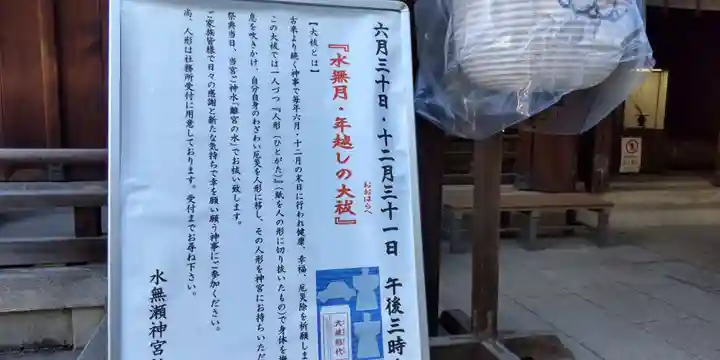 六月三十日・十二月三十一日 午後三時
『水無月・年越しの大祓』
おおはらへ
【大祓とは】
古来より続く神事で毎年六月・十二月の末日に行われ健康、幸福、厄災除を祈願しま
この大祓では一人づつ『人形（ひとがた）』(紙を人の形に切り抜いたもの)で身体を撫
息を吹きかけ、自分自身のわざわい厄災を人形に移し、その人形を神宮にお持ちいただ
祭典当日、当宮ご神水「離宮の水」でお祓い致します。
ご家族皆様で日々の感謝と新たな気持ちで幸を願い願う神事にご参加ください。
尚、人形は社務所受付に用意しております。受付までお尋ね下さい。
水無瀬神宮
大祓形代